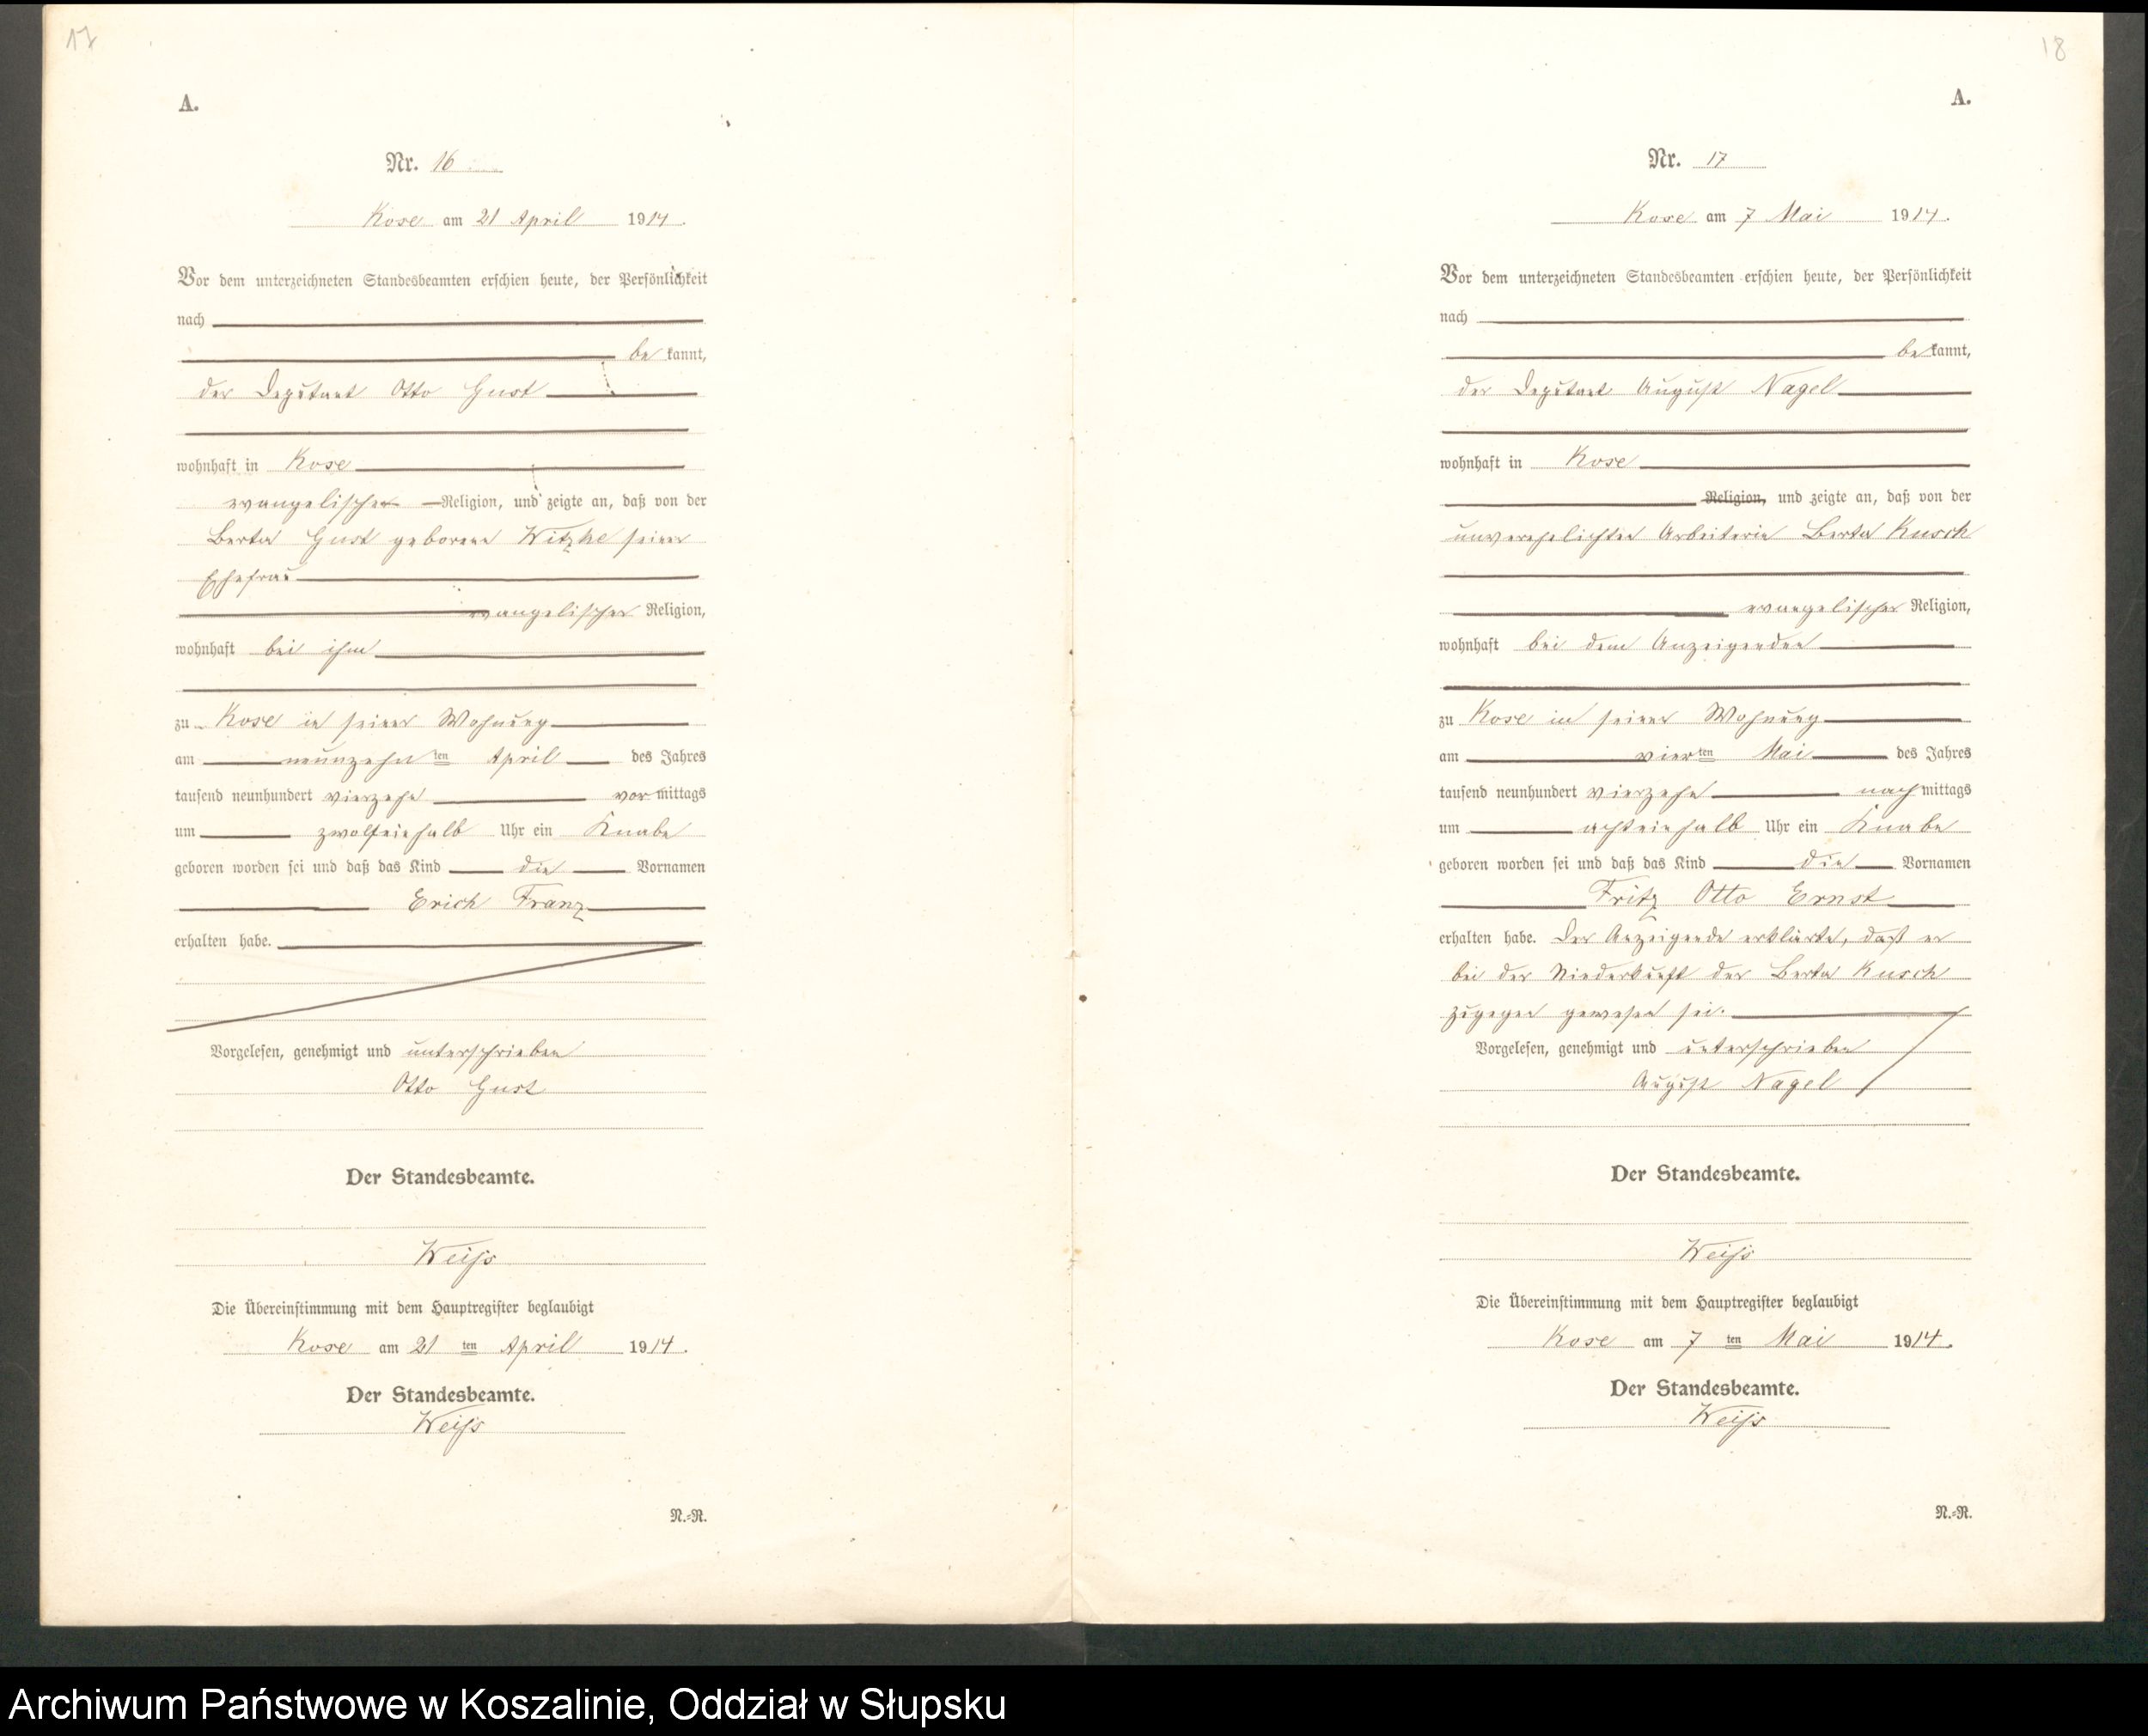 17
A.
Nr. 16
Kose am 21 April 1914.
Vor dem unterzeichneten Standesbeamten erschien heute, der Persönlichkeit
nach
be kannt,
der Deputant Otto Gust
wohnhaft in Kose
evangelischer Religion, und zeigte an, daß von der
Berta Gust geborene Witzke seiner
Ehefrau
evangelischer Religion,
wohnhaft bei ihm
zu Kose in seiner Wohnung
am neunzehn ten April des Jahres
tausend neunhundert vierzehn vor mittags
um zwolfeinhalb Uhr ein Knabe
geboren worden sei und daß das Kind die Vornamen
Erich Franz
erhalten habe.
Vorgelesen, genehmigt und unterschrieben
Otto Gust
Der Standesbeamte.
Weiß
Die Übereinstimmung mit dem Hauptregister beglaubigt
Kose am 21 ten April 1914.
Der Standesbeamte.
Weiß
N.-R.
18
A.
Nr. 17
Kose am 7 Mai 1914.
Vor dem unterzeichneten Standesbeamten erschien heute, der Persönlichkeit
nach
be kannt,
der Deputant August Nagel
wohnhaft in Kose
Religion, und zeigte an, daß von der
unverehelichten Arbeiterin Berta Kusch
evangelischer Religion,
wohnhaft bei dem Anzeigenden
zu Kose in seiner Wohnung
am vier ten Mai des Jahres
tausend neunhundert vierzehn nach mittags
um achteinhalb Uhr ein Knabe
geboren worden sei und daß das Kind die Vornamen
Fritz Otto Ernst
erhalten habe. Der Anzeigende erklärte, daß er
bei der Niederkunft der Berta Kusch
zugegen gewesen sei.
Vorgelesen, genehmigt und unterschrieben
August Nagel
Der Standesbeamte.
Weiß
Die Übereinstimmung mit dem Hauptregister beglaubigt
Kose am 7 ten Mai 1914.
Der Standesbeamte.
Weiß
N.-R.
Archiwum Państwowe w Koszalinie, Oddział w Słupsku